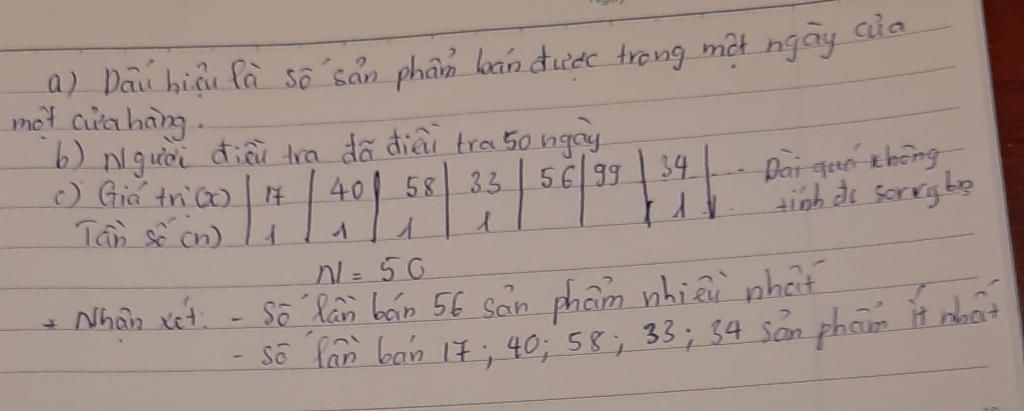 a) Dấu hiệu là số sản phẩm bán được trong một ngày của
một cửa hàng.
b) Người điều tra đã điều tra 50 ngày
c) Giá trị (x) | 17 | 40 | 58 | 33 | 56 | 99 | 34 | ... Dài quá không
Tần số (n) | 1 | 1 | 1 | 1 | | | 1 | . tính đc sorry bạ
N = 50
+ Nhận xét: - Số lần bán 56 sản phẩm nhiều nhất
- số lần bán 17; 40; 58; 33; 34 sản phẩm ít nhất